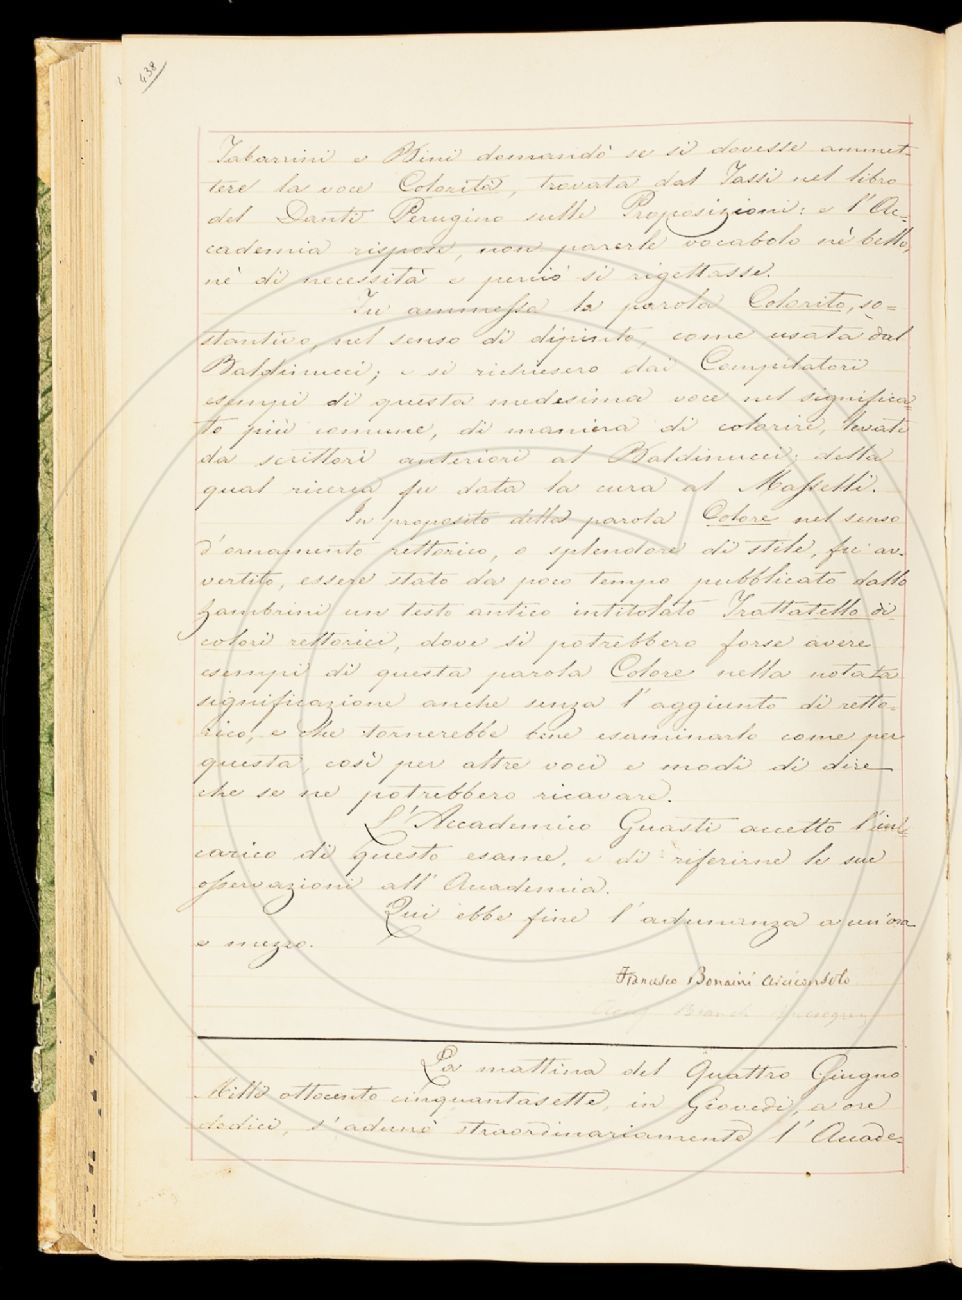 438
Tabarrini e Bini domandò se si dovesse ammet-
tere la voce Colorità, trovata dal Tassi nel libro
del Danti Perugino sulle Proposizioni: e l'Ac-
cademia rispose, non parerle vocabolo nè bello,
nè di necessità e perciò si rigettasse.
Fu ammessa la parola Colorito, so=
stantivo, nel senso di dipinto, come usata dal
Baldinucci; e si richiesero dai Compilatori
esempi di questa medesima voce nel significa=
to più comune, di maniera di colorire, levati
da scrittori anteriori al Baldinucci; della
qual ricerca fu data la cura al Masselli.
In proposito della parola Colore nel senso
d'ornamento rettorico, o splendore di stile, fu av-
vertito, essere stato da poco tempo pubblicato dallo
Zambrini un testo antico intitolato Trattatello di
colori rettorici, dove si potrebbero forse avere
esempi di questa parola Colore nella notata
significazione anche senza l'aggiunto di retto=
rico, e che tornerebbe bene esaminarlo come per
questa, così per altre voci e modi di dire
che se ne potrebbero ricavare.
L'Accademico Guasti accettò l'in=
carico di questo esame, e di riferirne le sue
osservazioni all'Accademia.
Qui ebbe fine l'adunanza a un'ora
e mezzo.
Francesco Bonaini Arciconsolo
Brunone Bianchi Segretario
La mattina del quattro Giugno
Mille ottocento cinquantasette, in Giovedì, a ore
dodici, s'adunò straordinariamente l'Accade=